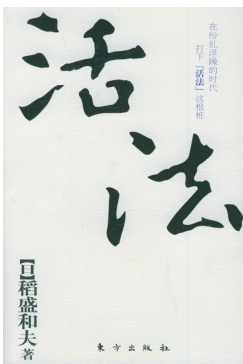 在纷乱浮躁的时代
打下「活法」这根桩
活法
【日】稻盛和夫 著
东方出版社